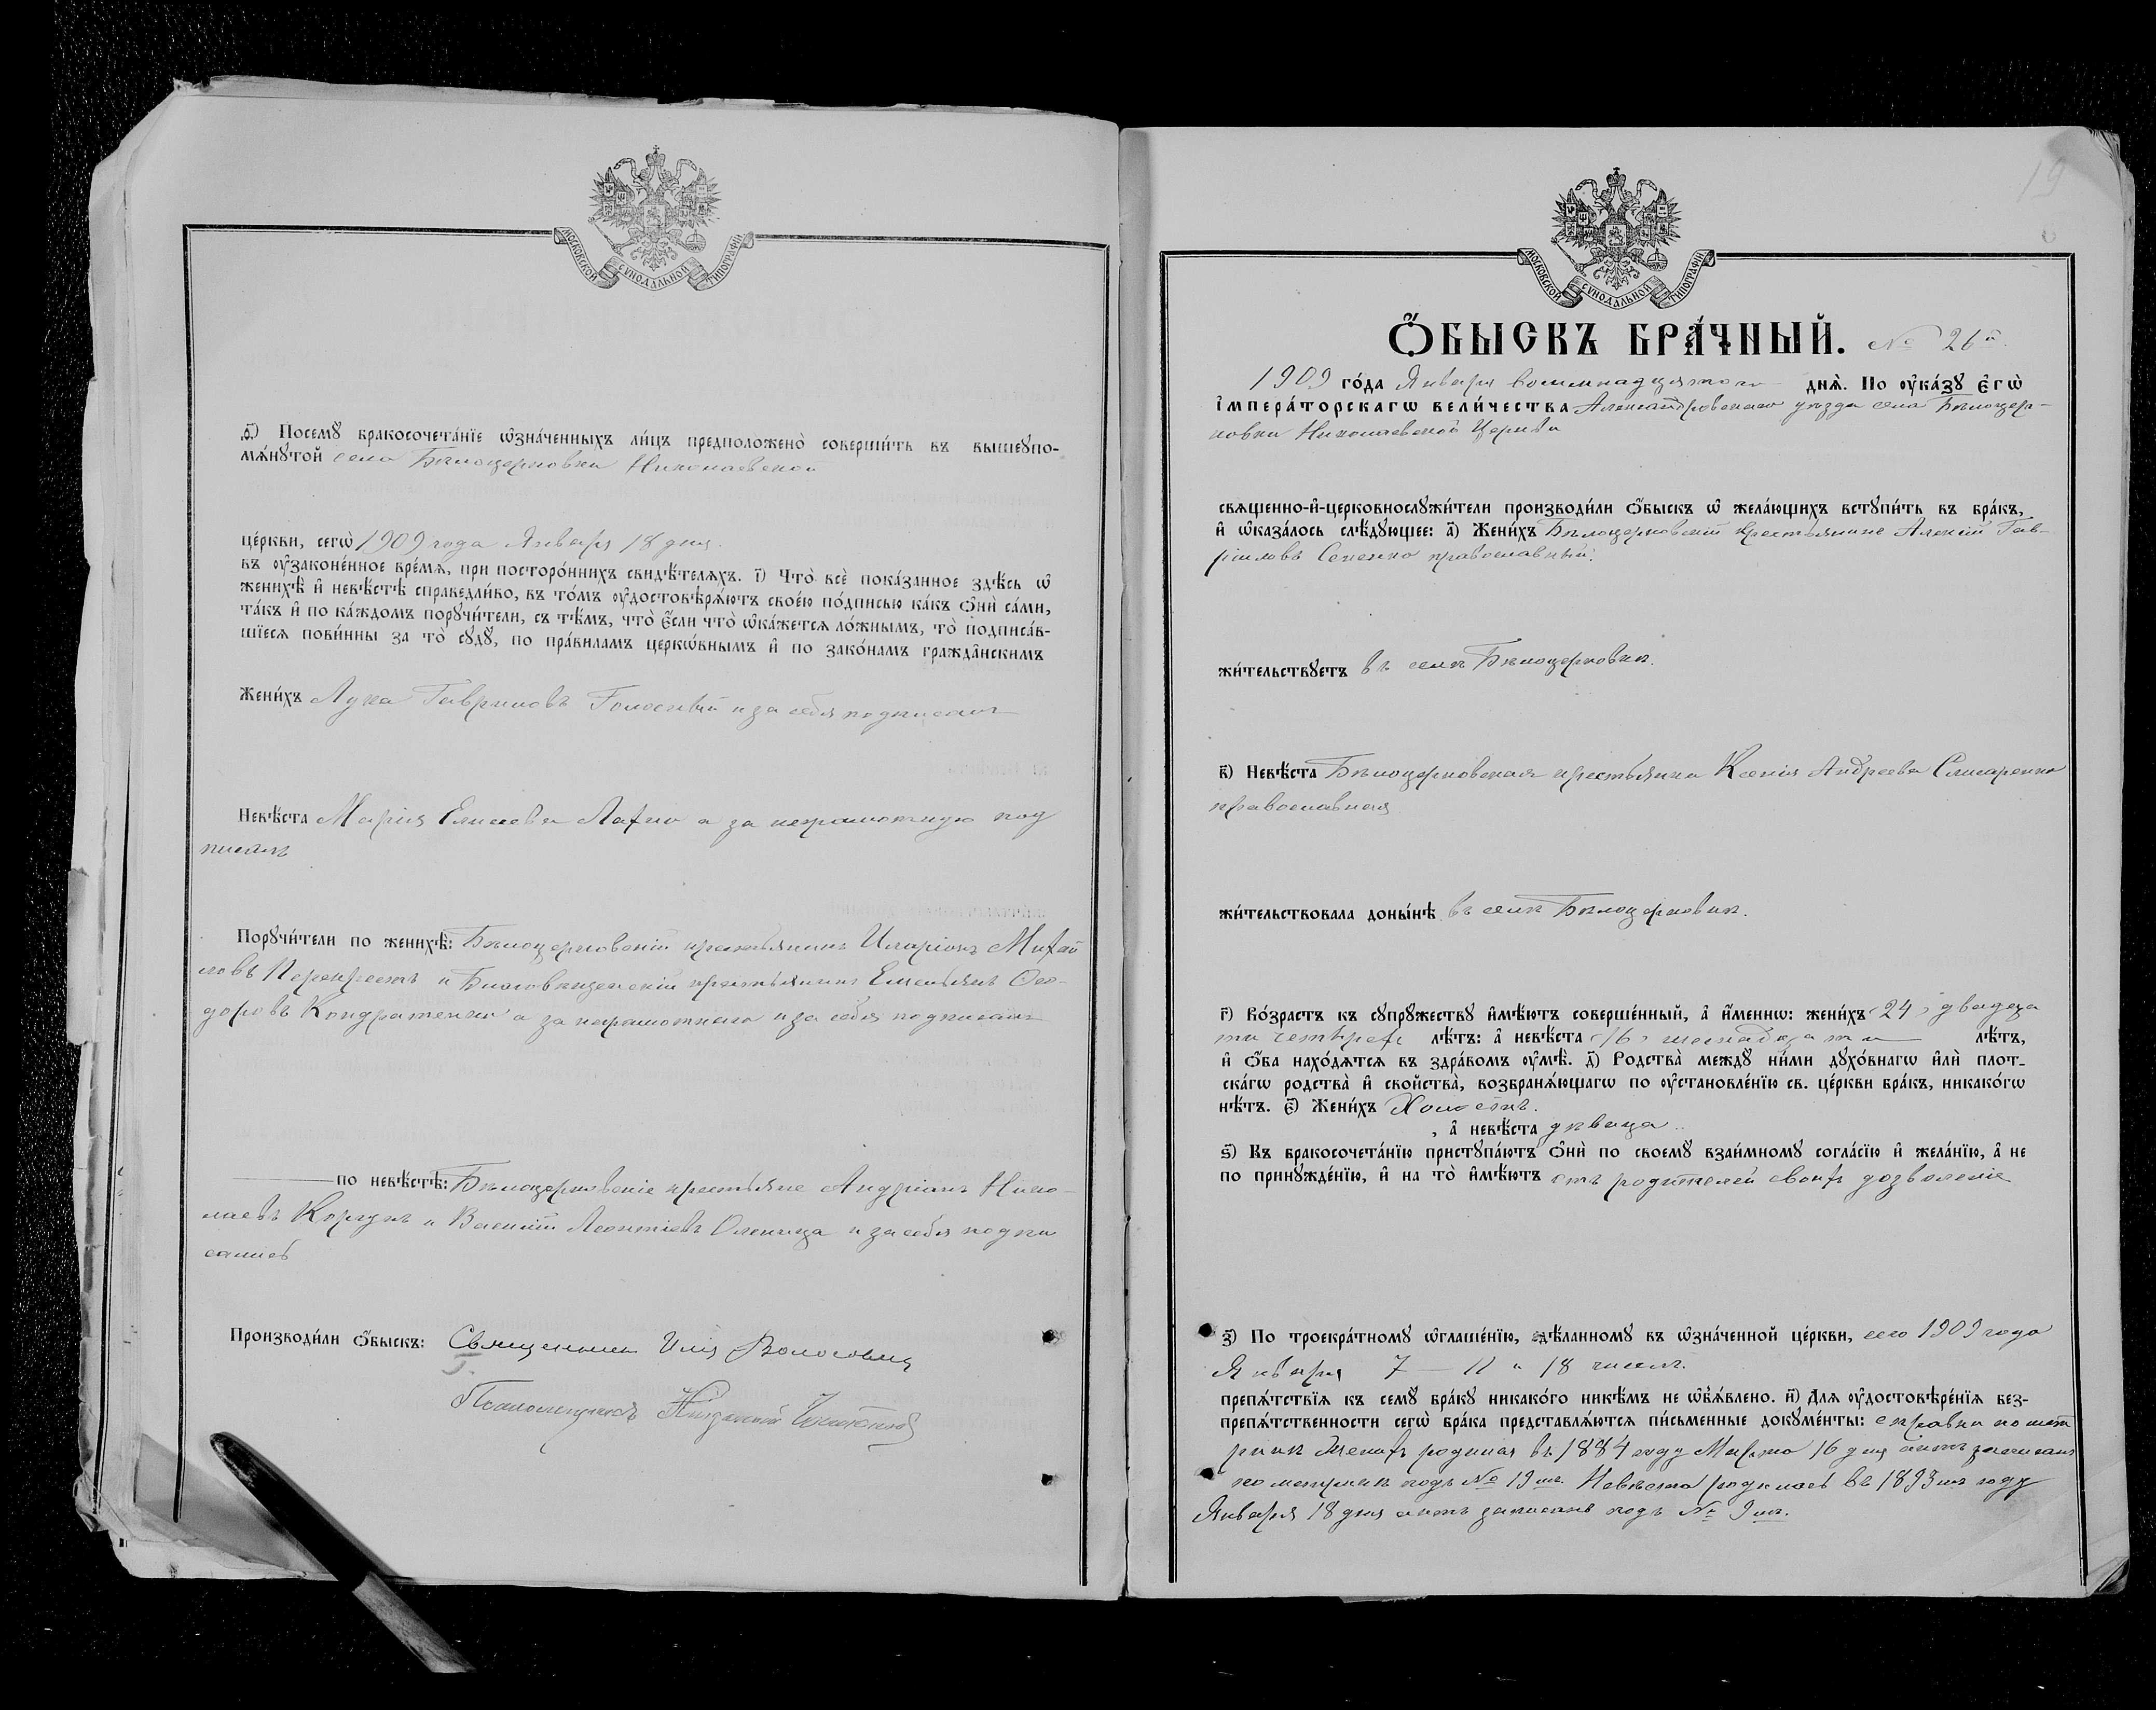 МОСКОВСКОЙ СѴНОДАЛЬНОЙ ТИПОГРАФІИ
ѳ҃) Посемꙋ̀ бракосочета́нїе ѡ҆зна́ченныхъ ли́цъ предположено̀ соверши́ть въ вышеꙋпо-
мѧ́нꙋтой села Бѣлоцерковки Николаевской
це́ркви, сегѡ̀ 1909 года Января 18 дня.
въ ᲂу҆зако́ненное вре́мѧ, при посторо́ннихъ свидѣ́телѧхъ. і҃) Что̀ всѐ пока́занное здѣ́сь ѡ҆
женихѣ̀ и҆ невѣ́стѣ справедли́во, въ то́мъ ᲂу҆достовѣрѧ́ютъ свое́ю по́дписью ка́къ ѻ҆нѝ са́ми,
та́къ и҆ по ка́ждомъ порꙋчи́тели, съ тѣ́мъ, что̀ є҆́сли что̀ ѡ҆ка́жетсѧ ло́жнымъ, то̀ подписа́в-
шїесѧ пови́нны за то̀ сꙋдꙋ̀, по пра́виламъ церкѡ́внымъ и҆ по зако́намъ гражда̑нскимъ
Жени́хъ Лука Гавриловъ Голосный и за себя подписалъ
Невѣ́ста Марія Елисеева Лахно а за неграмотную под
писалъ
Порꙋчи́тели по женихѣ̀: Бѣлоцерковскій крестьянинъ Иларіонъ Михай
ловъ Перекрестъ и Благовѣщенскій крестьянинъ Емельянъ Ѳео-
доровъ Кондратенко а за неграмотнаго и за себя подписалъ
по невѣ́стѣ: Бѣлоцерковскіе крестьяне Андріанъ Нико-
лаевъ Коржъ и Василій Леонтіевъ Олекса и за себя подпи
сались
Производи́ли ѻ҆́быскъ: Священникъ Илія Волосовичъ
Псаломщикъ
МОСКОВСКОЙ СѴНОДАЛЬНОЙ ТИПОГРАФІИ
19
Ѻ҆́БЫСКЪ БРА́ЧНЫЙ. № 26й.
1909 го́да Января восемнадцатаго днѧ̀. По ᲂу҆ка́зꙋ Є҆гѡ̀
І҆мпера́торскагѡ вели́чества Александровскаго уѣзда села Бѣлоцер-
ковки Николаевской Церкви
свѧщенно-и҆-церковнослꙋжи́тели производи́ли ѻ҆́быскъ ѡ҆ жела́ющихъ встꙋпи́ть въ бра́къ,
и҆ ѡ҆каза́лось слѣ́дꙋющее: а҃) Жени́хъ Бѣлоцерковскій крестьянинъ Алексій Гав-
ріиловъ Сененко православный.
жи́тельствꙋетъ въ селѣ Бѣлоцерковкѣ.
в҃) Невѣ́ста Бѣлоцерковская крестьянка Ксенія Андреева Слисаренко
православная
жи́тельствовала доны́нѣ въ селѣ Бѣлоцерковкѣ.
г҃) Во́зрастъ къ сꙋпрꙋ́жествꙋ и҆мѣ́ютъ соверше́нный, а҆ и҆́меннѡ: жени́хъ 24, двадца
ти четырех лѣ́тъ: а҆ невѣ́ста 16, шеснадцати лѣ́тъ,
и҆ ѻ҆́ба нахо́дѧтсѧ въ здра́вомъ ᲂу҆мѣ̀. д҃) Родства̀ междꙋ̀ ни́ми дꙋхо́внагѡ и҆лѝ плот-
ска́гѡ родства̀ и҆ сво́йства, возбранѧ́ющагѡ по ᲂу҆становле́нїю св. це́ркви бра́къ, никако́гѡ
нѣ́тъ. є҃) Жени́хъ Холостъ.
, а҆ невѣ́ста дѣвица.
ѕ҃) Къ бракосочета́нїю пристꙋпа́ютъ ѻ҆нѝ по своемꙋ̀ взаи́мномꙋ согла́сїю и҆ жела́нїю, а҆ не
по принꙋжде́нїю, и҆ на то̀ и҆мѣ́ютъ отъ родителей своихъ дозволеніе
з҃) По троекра́тномꙋ ѡ҆глаше́нїю, здѣ́ланномꙋ въ ѡ҆зна́ченной це́ркви, сего 1909 года
Января 7 — 11 и 18 числъ.
препѧ́тствїѧ къ семꙋ̀ бра́кꙋ никако́го никѣ́мъ не ѡ҆б̾ѧ́влено. и҃) Длѧ ᲂу҆достовѣре́нїѧ без-
препѧ́тственности сегѡ̀ бра́ка представлѧ́ютсѧ пи́сьменные докꙋме́нты: справка по мет
рикѣ Женихъ родился въ 1884 году Марта 16 дня актъ записанъ
по метрикѣ подъ № 19 мъ. Невѣста родилась въ 1893 мъ году
Января 18 дня актъ записанъ подъ № 9 мъ.